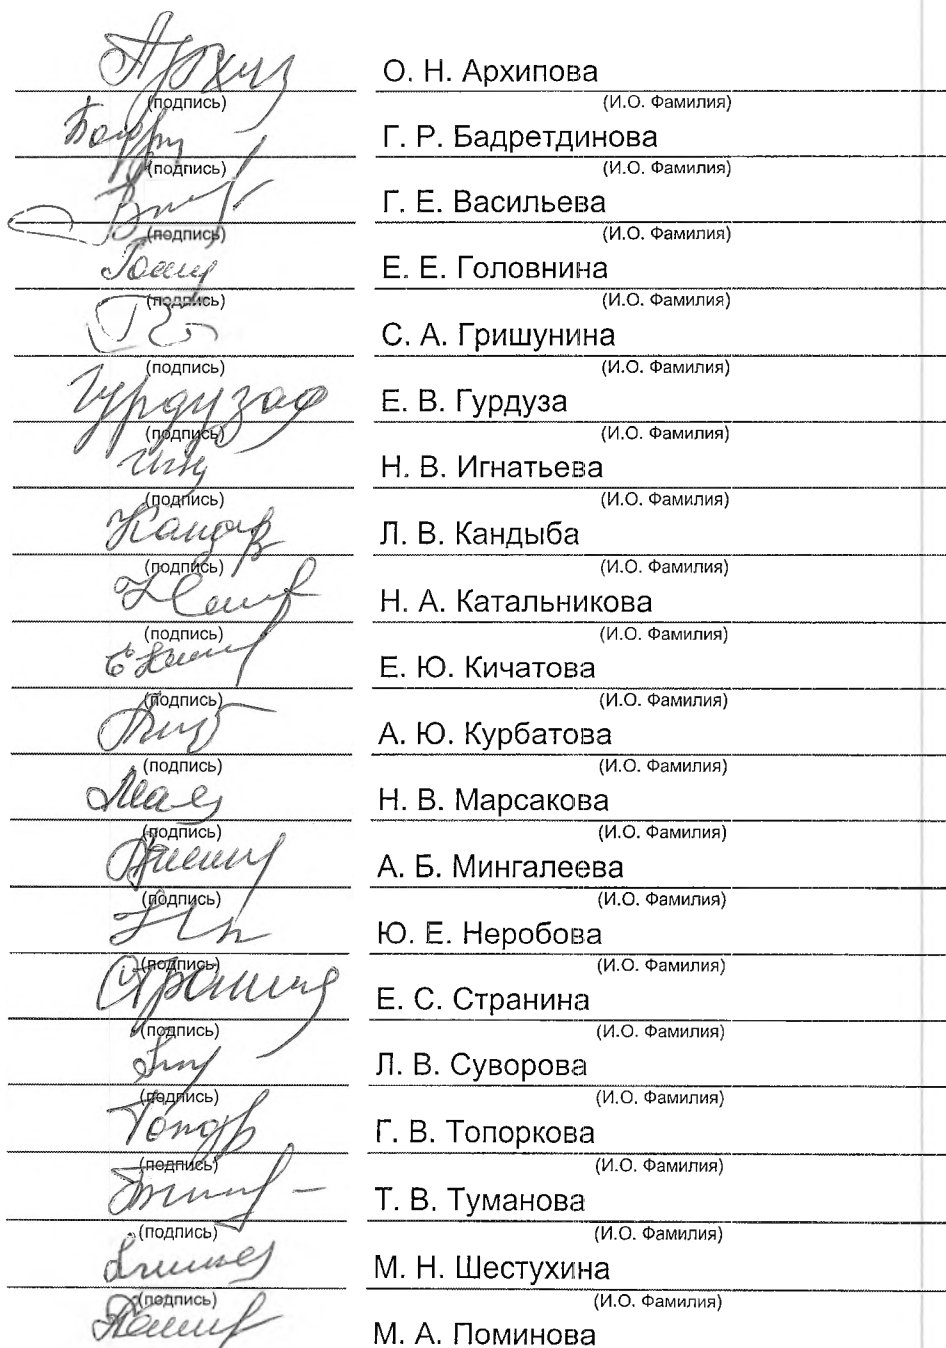 О. Н. Архипова
(подпись) (И.О. Фамилия)
Г. Р. Бадретдинова
(подпись) (И.О. Фамилия)
Г. Е. Васильева
(подпись) (И.О. Фамилия)
Е. Е. Головнина
(подпись) (И.О. Фамилия)
С. А. Гришунина
(подпись) (И.О. Фамилия)
Е. В. Гурдуза
(подпись) (И.О. Фамилия)
Н. В. Игнатьева
(подпись) (И.О. Фамилия)
Л. В. Кандыба
(подпись) (И.О. Фамилия)
Н. А. Катальникова
(подпись) (И.О. Фамилия)
Е. Ю. Кичатова
(подпись) (И.О. Фамилия)
А. Ю. Курбатова
(подпись) (И.О. Фамилия)
Н. В. Марсакова
(подпись) (И.О. Фамилия)
А. Б. Мингалеева
(подпись) (И.О. Фамилия)
Ю. Е. Неробова
(подпись) (И.О. Фамилия)
Е. С. Странина
(подпись) (И.О. Фамилия)
Л. В. Суворова
(подпись) (И.О. Фамилия)
Г. В. Топоркова
(подпись) (И.О. Фамилия)
Т. В. Туманова
(подпись) (И.О. Фамилия)
М. Н. Шестухина
(подпись) (И.О. Фамилия)
М. А. Поминова